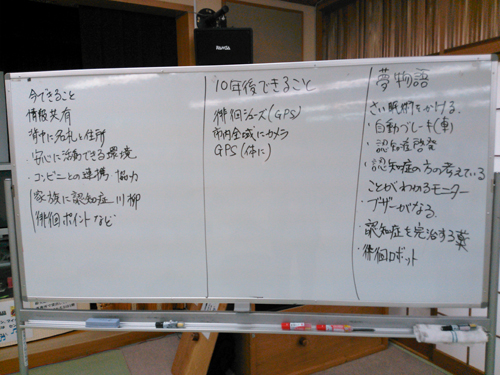 今できること
情報共有
背中に名札と住所
・安心に活動できる環境
・コンビニとの連携 協力
家族に認知症 川柳
徘徊ポイントなど
10年後できること
徘徊シューズ(GPS)
市内全域にカメラ
GPS(体に)
夢物語
さい眠術をかける。
・自動ブレーキ(車)
・認知症啓発
・認知症の方の考えている
ことがわかるモニター
・ブザーがなる。
・認知症を完治する薬
・徘徊ロボット